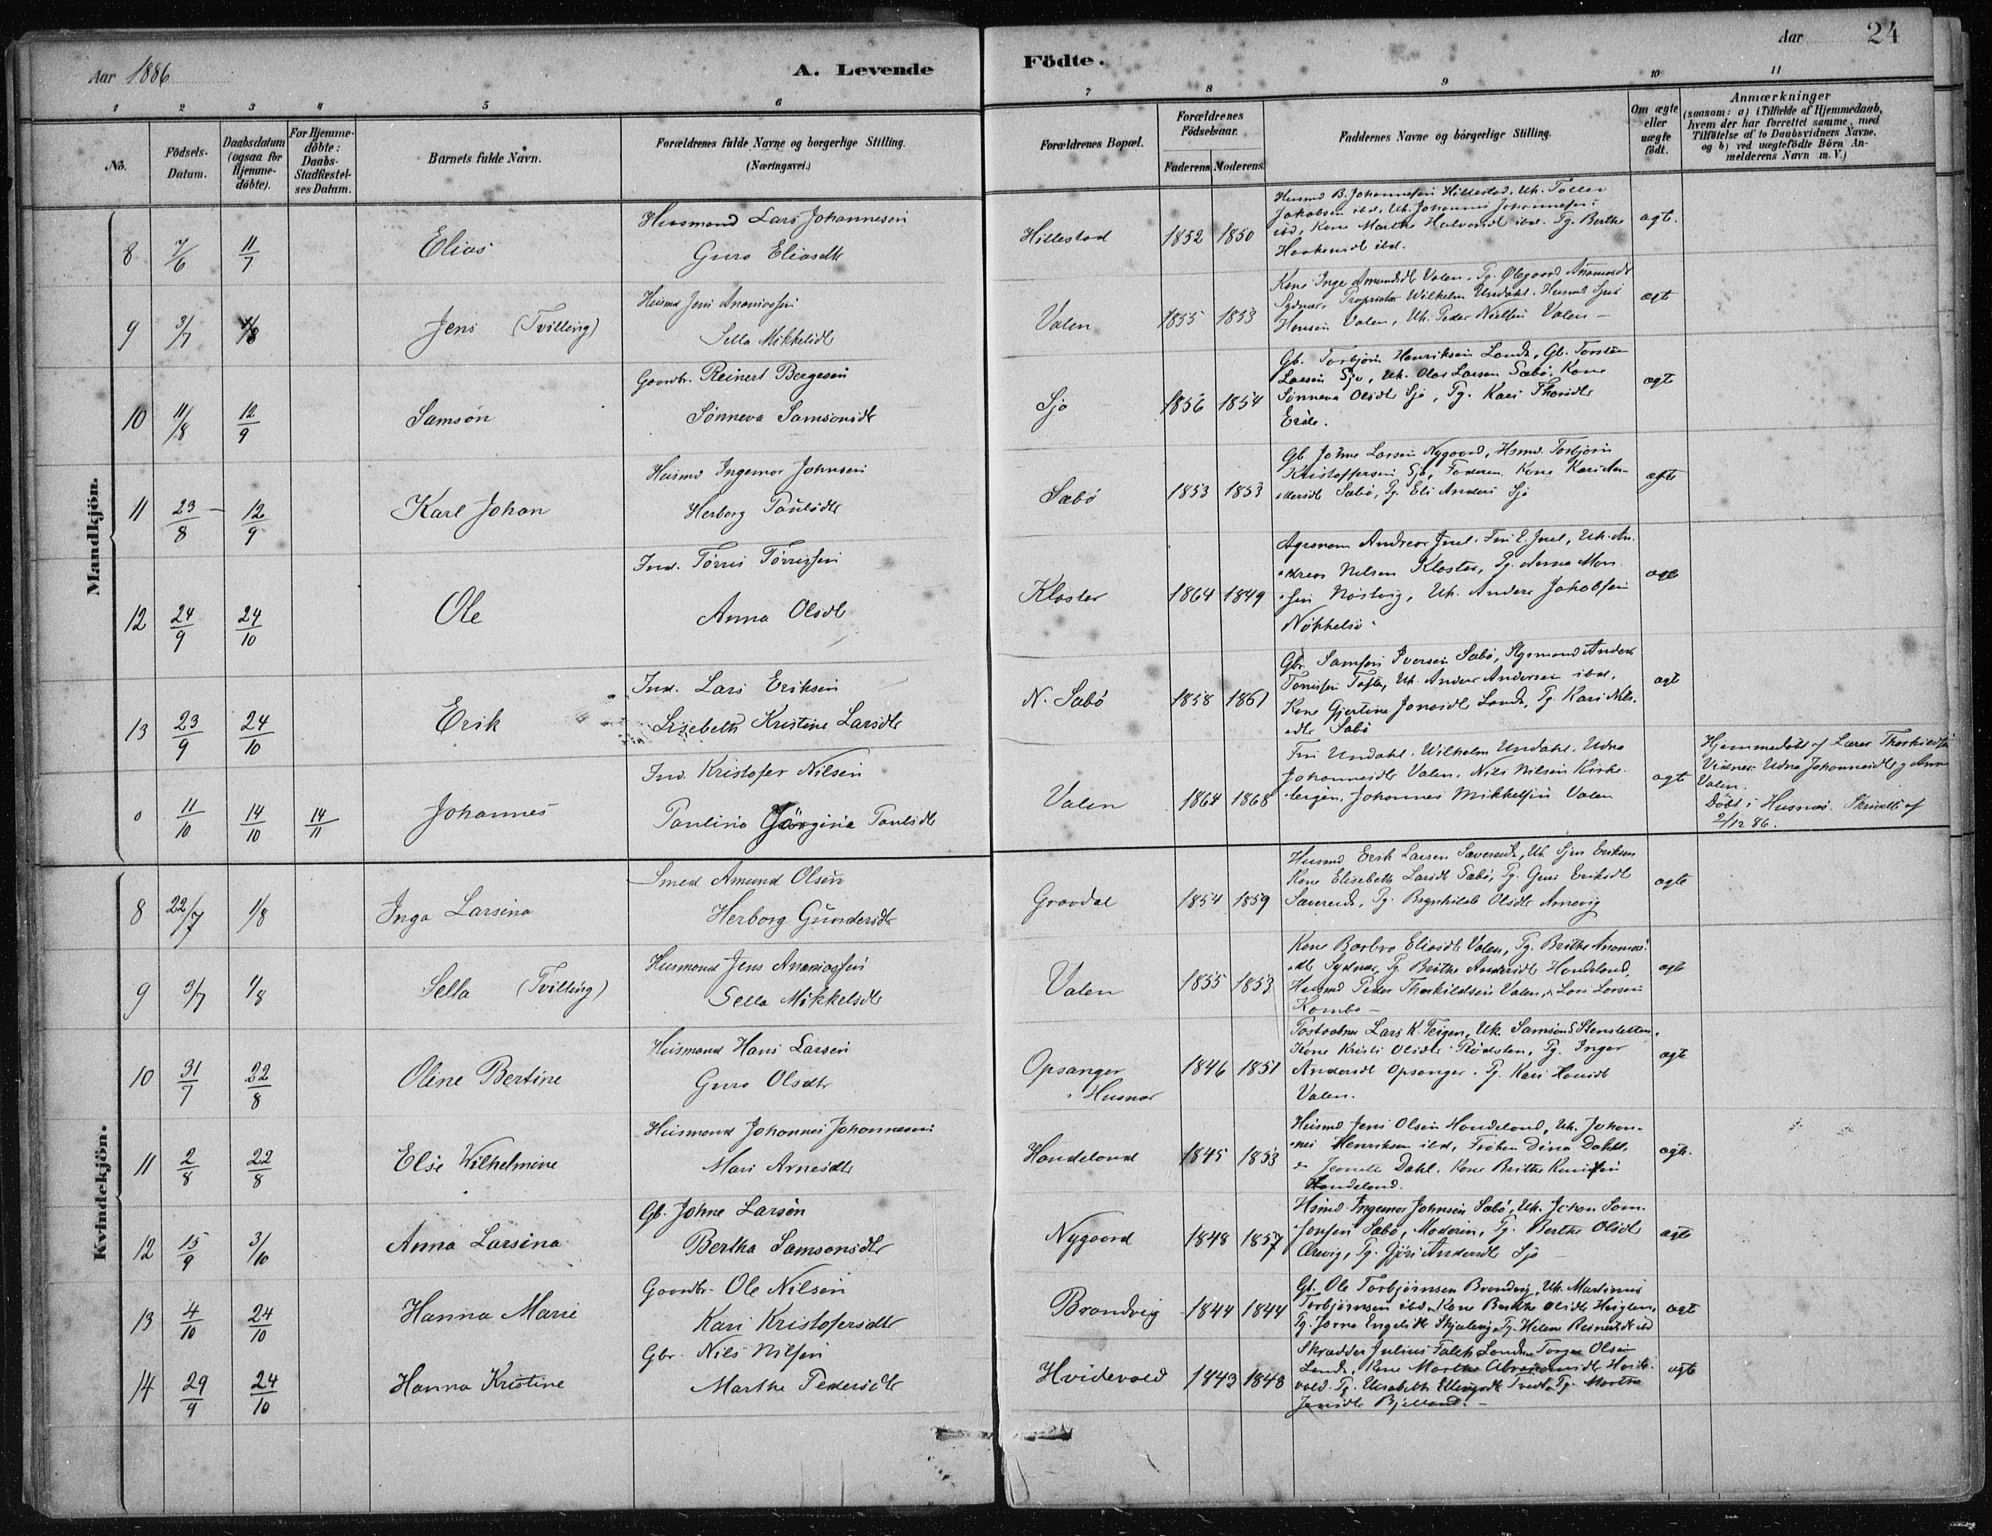 Aar 1886
A. Levende
Födte.
Aar
24
1 2 3 4 5 6 7 8 9 10 11
No.
Födsels-
Datum.
Daabsdatum
(ogsaa for
Hjemme-
döbte).
For Hjemme-
döbte:
Daabs-
Stadfæstel-
ses Datum.
Barnets fulde Navn.
Forældrenes fulde Navne og borgerlige Stilling.
(Næringsvei.)
Forældrenes Bopæl.
Forældrenes
Födselsaar.
Faderens Moderens
Faddernes Navne og borgerlige Stilling.
Om ægte
eller
uægte
födt.
Anmærkninger
(saasom: a) i Tilfælde af Hjemmedaab,
hvem der har forrettet samme, med
Tilföielse af to Daabsvidners Navne.
og b) ved uægtefödte Börn An-
melderens Navn m. V.)
Mandkjön.
8 7/6 11/7 Elias
Husmand Lars Johannesen
Guro Eliasdt
Hillestad 1852 1850
Husmd B. Johannesen Hillestad, Uk. Tollev
Jakobsen ibd, Uk. Johannes Johannesen
ibd, Kone Martha Halvorsdt ibd. Pg. Berthe
Haakensdt ibd.
ægt.
9 3/7 1/8 Jens (Tvilling)
Husmd Jens Ananiassen
Sella Mikkelsdt
Valen 1855 1853
Kone Inge Amundsdt Valen, Pg. Ølegaard Ananiasdt
Sydnæs, Proprietær Wilhelm Undahl, Husmd Sjur
Hansen Valen, Uk. Peder Nielsen Valen
ægt
10 11/8 12/9 Samson
Gaardbr. Reinert Bergesen
Sønneva Samsonsdt
Sjo 1856 1854
Gb. Torbjörn Henriksen Lande, Gb. Torsten
Larsen Sjo, Uk. Olas Larsen Sæbö, Kone
Sønneva Olsdt Sjo, Pg. Kari Thorsdt
ægt
11 23/8 12/9 Karl Johan
Husmd Ingemar Johnsen
Herborg Paulsdt
Sæbö 1853 1853
Gb. Johne Larsen Nygaard, Hsmd Torbjörn
Kristoffersen Sjo, Faderen. Kone Kari An-
dersdt Sæbö, Pg. Eli Anders Sjo
ægte
12 24/9 24/10 Ole
Ind. Törris Törrissen
Anna Olsdt
Kloster 1864 1849
Agronom Andreas Juel. Fru E. Juel, Uk. An-
dreas Nilsen Kloster, Pg. Anna Mon-
sen Nöstvig, Uk. Anders Jakobsen
Nökkelsö
ægt
13 23/9 24/10 Erik
Ind. Lars Eriksen
Lisebeth Kristine Larsdt
N. Sæbö 1858 1861
Gbr Samson Iversen Sæbö, Styrmand Anders
Torrissen Tofte, Uk. Anders Andersen ibd,
Kone Gjertine Jonasdt Lande, Pg. Kari Nils-
dt Sæbö
ægt
0 11/10 14/10 14/11 Johannes
Ind. Kristofer Nilsen
Paulina Görgine Paulsdt
Valen 1864 1868
Fru Undahl. Wilhelm Undahl. Udna
Johannesdt Valen. Nils Nilsen Kirke-
bergen, Johannes Mikkelsen Valen
ægt
Hjemmedöbt af Lærer Thorkildsen
Vidner Udna Johannesdt og Anna
Valen.
Döbt i Husnæs. Skrivelse af
2/12 86.
Kvindekjön.
8 22/7 1/8 Inga Larsina
Smed Amund Olsen
Herborg Gundersdt
Gravdal 1854 1859
Husmd Erik Larsen Sævereide, Uk Sjur Eriksen
Kone Elisebeth Larsdt Sæbö, Pg. Guri Eriksdt
Sævereide, Pg. Brynhild Olsdt Arnevig
ægte
9 3/7 1/8 Sella (Tvilling)
Husmand Jens Ananiassen
Sella Mikkelsdt
Valen 1855 1853
Kone Barbro Eliasdt Valen, Pg. Brithe Ananias-
dt Sydnæs, Pg. Brithe Andersdt Handeland,
Husmd Peder Thorkildsen Valen, Lars Larsen
ægt
10 31/7 22/8 Oline Bertine
Husmand Hans Larsen
Guro Olsdt
Opsanger
i Husnæs 1846 1851
Postaabner Lars K. Teigen, Uk. Samson S. Stensletten,
Kone Kristi Olsdt Rödsten, Pg. Inger
Andersdt Opsanger. Pg. Kari Hansdt
Valen.
ægte
11 2/8 22/8 Else Wilhelmine
Husmand Johannes Johannesen
Mari Arnesdt
Handeland 1845 1853
Husmd Jens Olsen Handeland, Uk. Johan-
nes Henriksen ibd, Fröken Dina Dahl,
Jeanette Dahl. Kone Brithe Knudsen
Handeland.
ægte.
12 15/9 3/10 Anna Larsina
Gb. Johne Larsen
Bertha Samsonsdt
Nygaard 1848 1857
Hsmd Ingemar Johnsen Sæbö, Uk. Johan Sam-
sonsen Sæbö, Moderen, Pg. Berthe Olsdt
Ølvevig, Pg. Guri Andersdt Sjo
ægte
13 4/10 24/10 Hanna Marie
Gaardbr. Ole Nilsen
Kari Kristofersdt
Brandvig 1844 1844
Gb. Ole Torbjörnsen Brandvig, Uk. Martinus
Torbjörnsen ibd, Kone Berthe Olsdt Huglen,
Pg. Jorna Engelsdt Skjælevig, Pg. Helene Reinertsdt ibd
ægt
14 29/9 24/10 Hanna Kristine
Gbr. Nils Nilsen
Marthe Pedersdt
Hvidevold 1843 1848
Skrædder Julius Falch Lande Torger Olsen
Lande, Kone Marthe Abrahamsdt Hvide-
vold. Pg. Elisabeth Ellingsdt Tvedt. Pg. Marthe
Jensdt Bjelland.
ægte